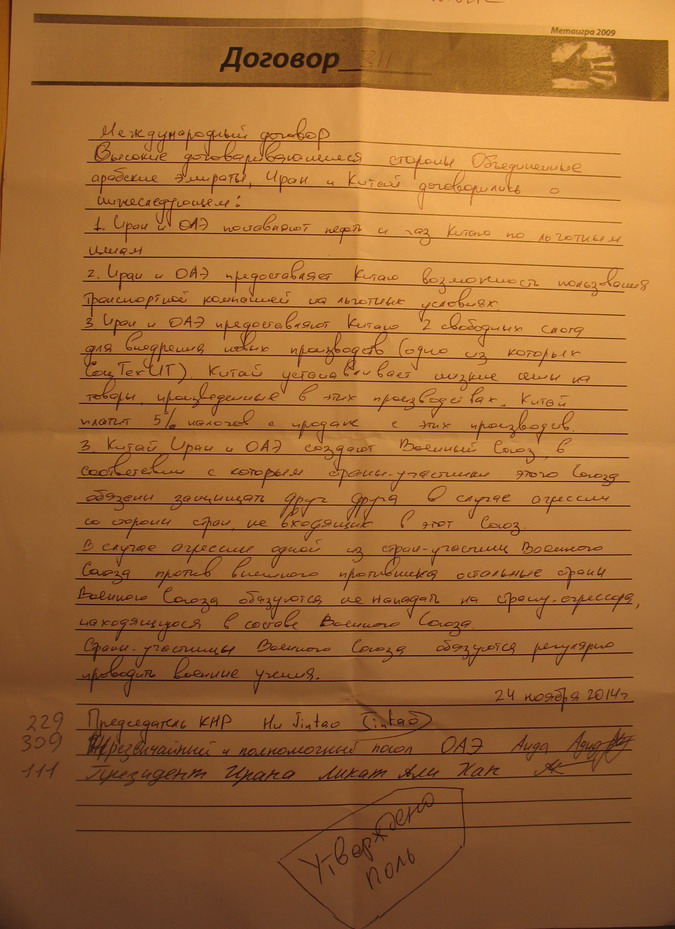 Метаигра 2009
Договор
Международный договор
Высокие договаривающиеся стороны Объединенные
арабские эмираты, Иран и Китай договорились о
нижеследующем:
1. Иран и ОАЭ поставляют нефть и газ Китаю по льготным
ценам
2. Иран и ОАЭ предоставляет Китаю возможность пользования
транспортной компанией на льготных условиях
3. Иран и ОАЭ предоставляют Китаю 2 свободных слота
для внедрения новых производств (одно из которых
СоцТех IT). Китай устанавливает низкие цены на
товары, произведенные в этих производствах. Китай
платит 5% налогов с продаж с этих производств.
3. Китай Иран и ОАЭ создают Военный Союз, в
соответствии с которым страны-участники этого Союза
обязаны защищать друг друга в случае агрессии
со стороны стран, не входящих в этот Союз.
В случае агрессии одной из стран-участниц Военного
Союза против внешнего противника остальные страны
Военного Союза обязуются не нападать на страну-агрессора,
находящуюся в составе Военного Союза
Страны-участницы Военного Союза обязуются регулярно
проводить военные учения.
24 ноября 2014г
229 Председатель КНР Hu Jintao (Jintao)
309 Чрезвычайный и полномочный посол ОАЭ Аида Аида
111 Президент Ирана Ликат Али Хан
Утверждено
Поль